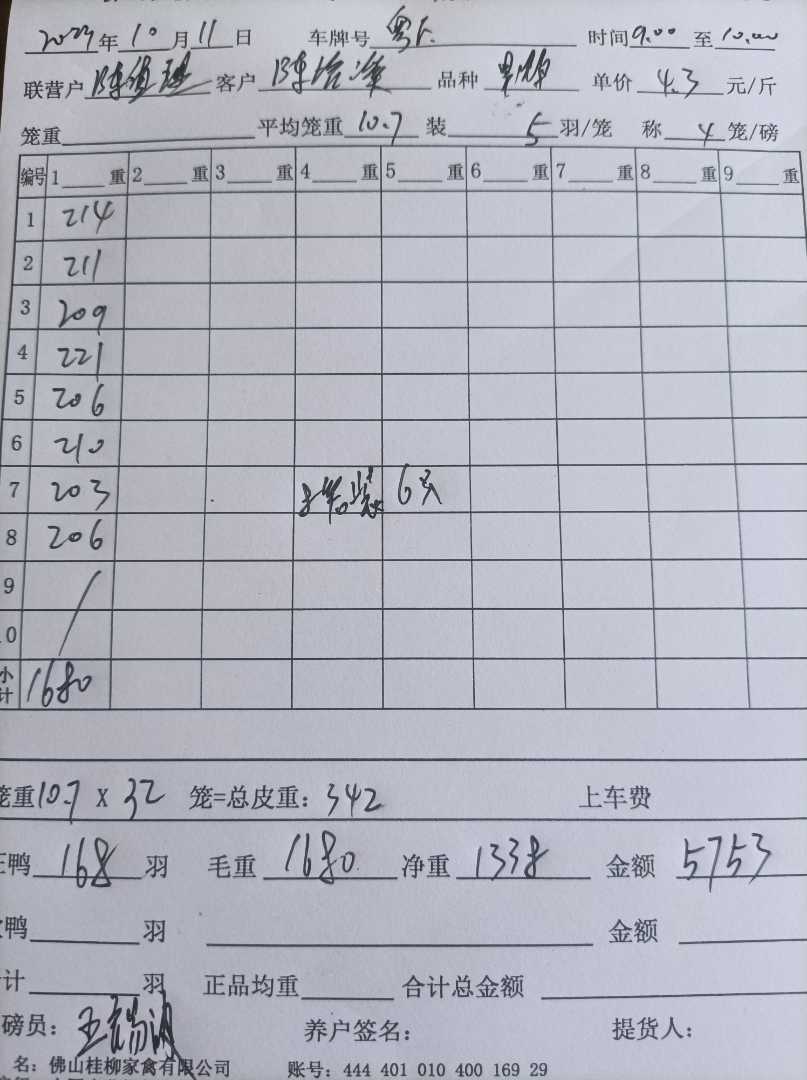 2023年 10月11日 车牌号 粤 时间9.00至10.00
联营户 陈 客户 陈 品种 单价 4.3 元/斤
笼重 平均笼重 10.7 装 5 羽/笼 称 4 笼/磅
编号 1 重 2 重 3 重 4 重 5 重 6 重 7 重 8 重 9 重
1 214
2 211
3 209
4 221
5 206
6 210
7 203 装 6只
8 206
9
10
小计 1680
笼重10.7 X 32 笼=总皮重: 342 上车费
正鸭 168 羽 毛重 1680 净重 1338 金额 5753
鸭 羽 金额
计 羽 正品均重 合计总金额
磅员: 王 养户签名: 提货人:
名: 佛山桂柳家禽有限公司 账号: 444 401 010 400 169 29